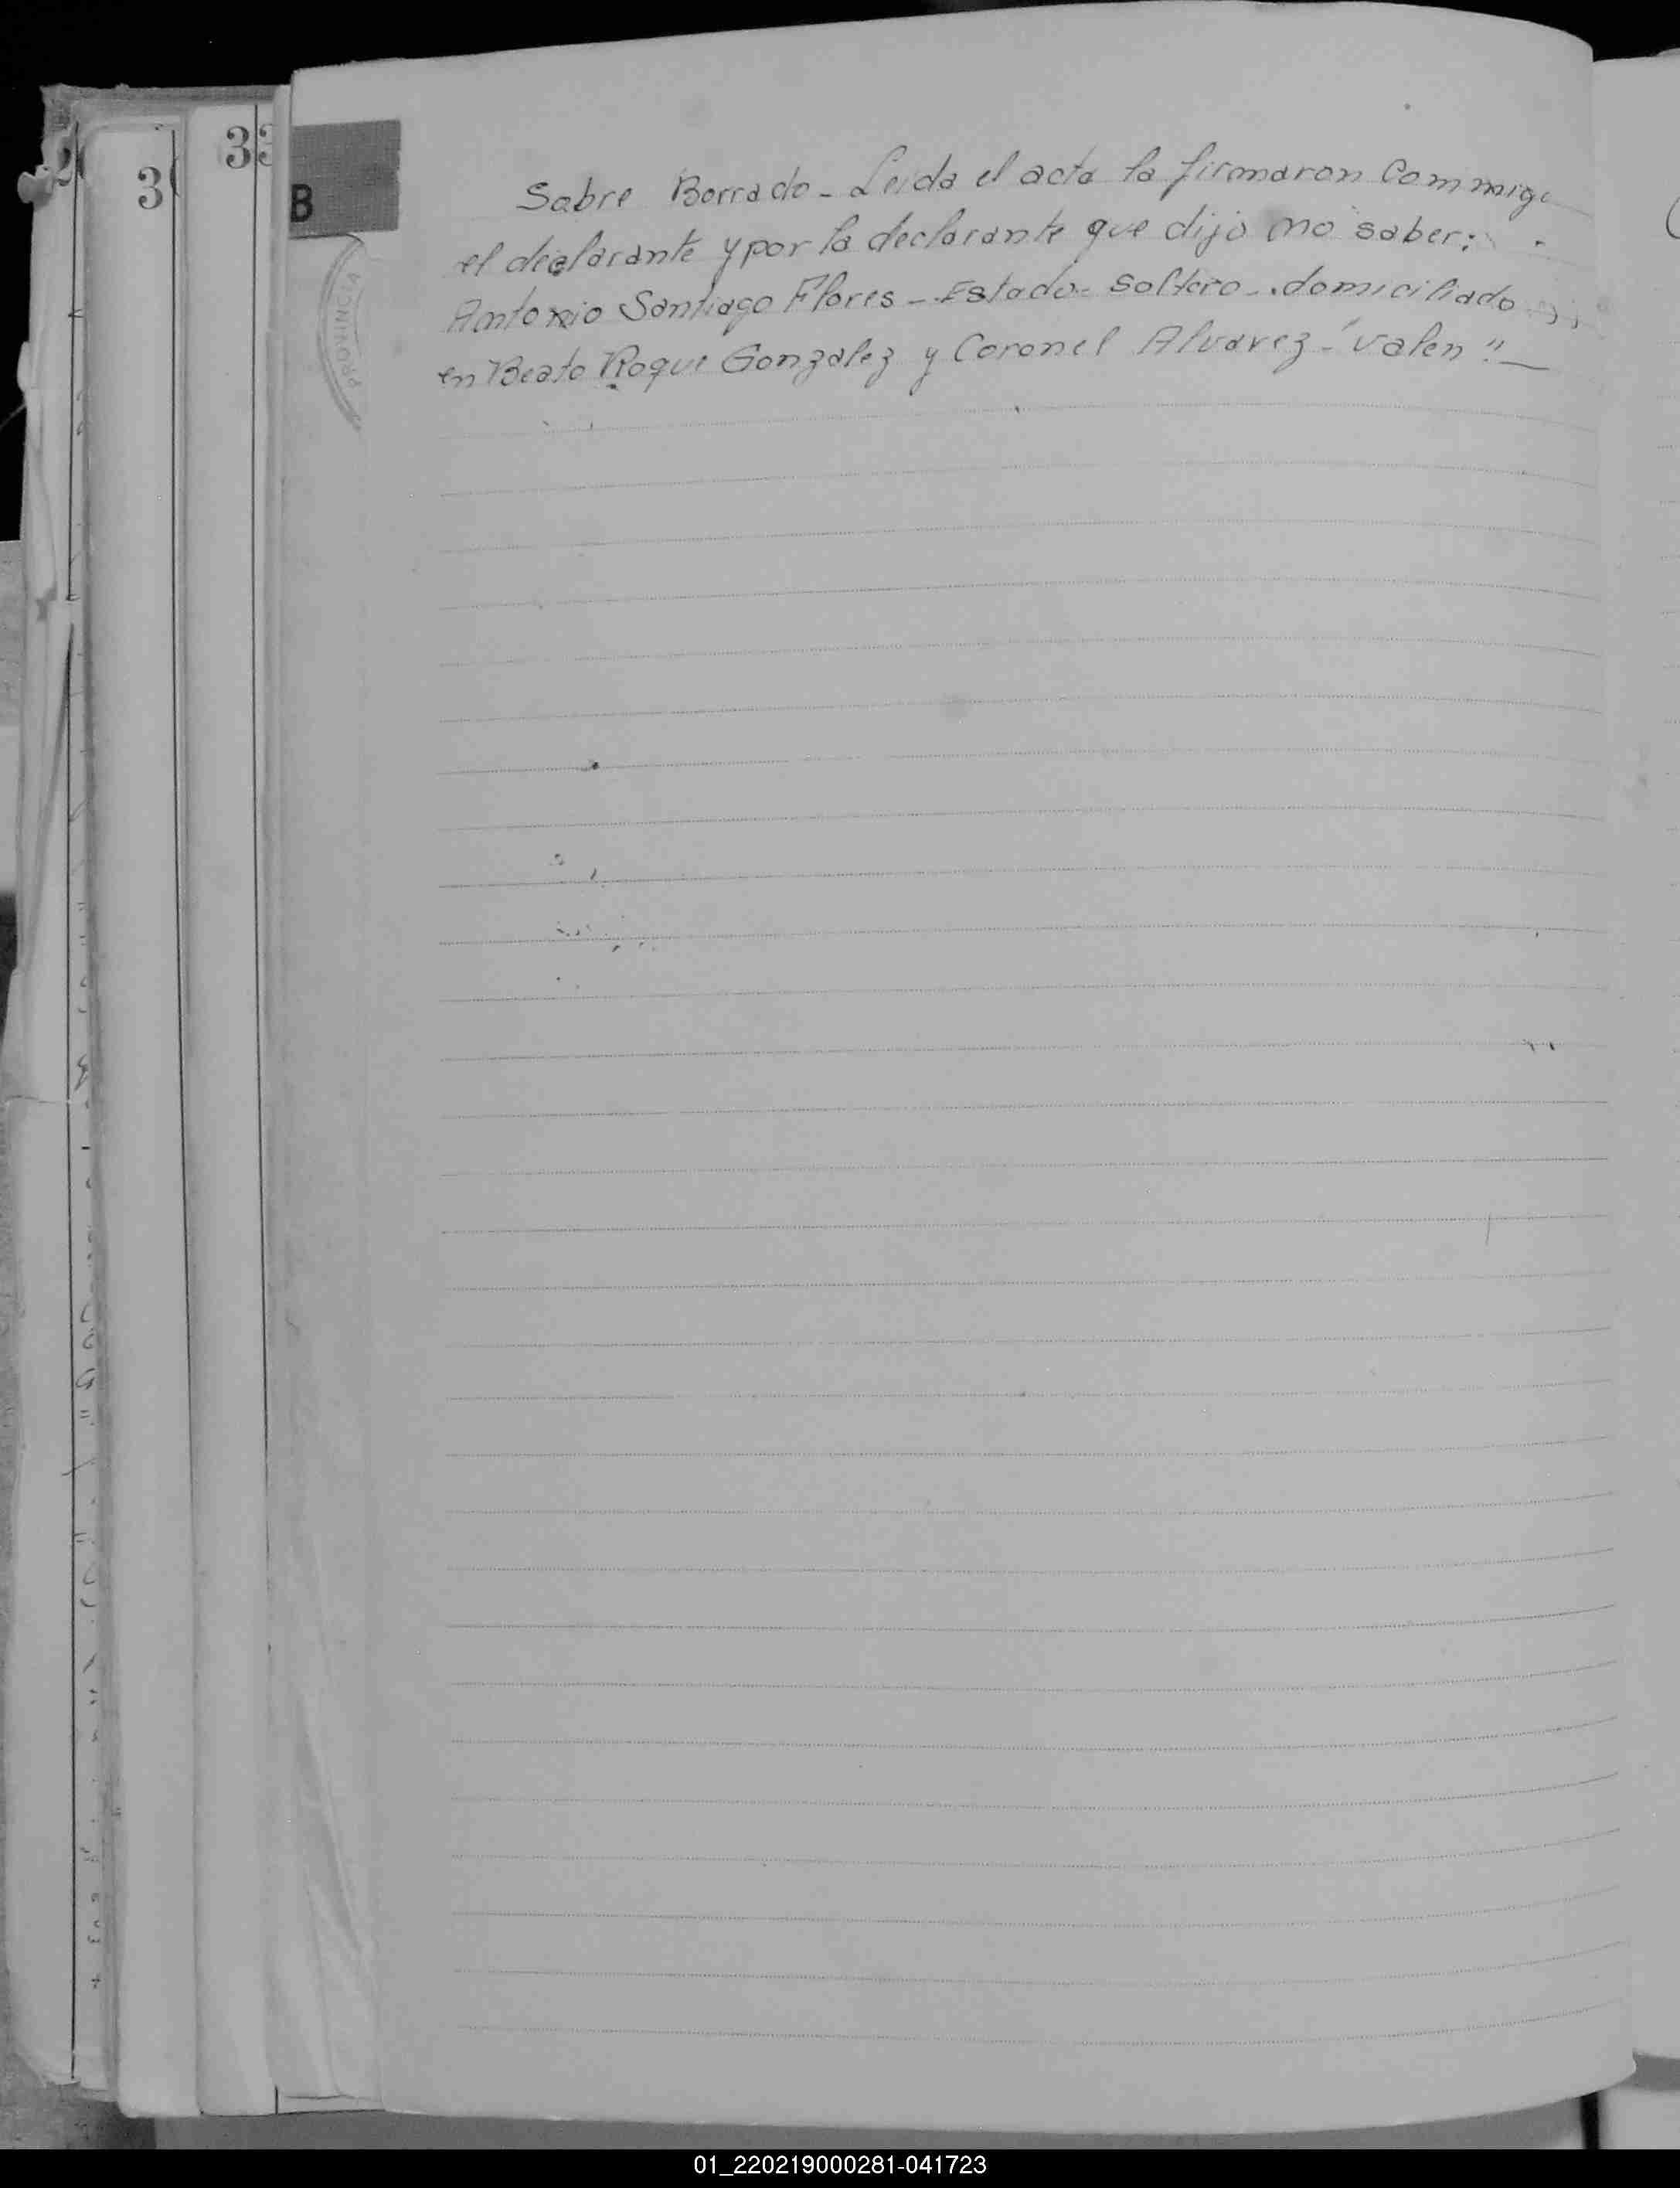 3
33
B
PROVINCIA
Sobre Borrado - Leida el acta la firmaron Commigo
el declarante y por la declarante que dijo no saber:
Antonio Santiago Flores - Estado - Soltero - domiciliado
en Beato Roque Gonzalez y Coronel Alvarez - "valen"
01_220219000281-041723